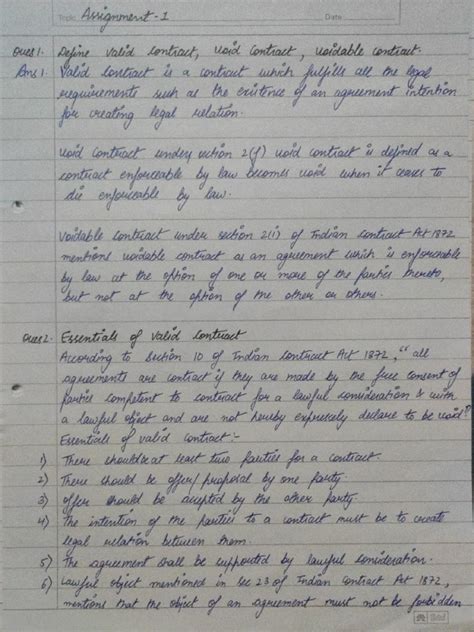 Topic Assignment - 1 Date
Ques 1. Define valid contract, void contract, voidable contract.
Ans 1. Valid contract is a contract which fulfills all the legal
requirements such as the existence of an agreement intention
for creating legal relation.
Void contract under section 2(j) void contract is defined as a
contract enforceable by law becomes void when it ceases to
die enforceable by law.
Voidable contract under section 2(i) of Indian contract Act 1872
mentions voidable contract as an agreement which is enforceable
by law at the option of one or more of the parties thereto,
but not at the option of the other or others.
Ques 2. Essentials of valid contract
According to section 10 of Indian contract Act 1872, "all
agreements are contract if they are made by the free consent of
parties competent to contract for a lawful consideration & with
a lawful object and are not hereby expressely declare to be void"
Essentials of valid contract:-
1) There should be at least two parties for a contract.
2) There should be offer/proposal by one party.
3) offer should be accepted by the other party.
4) The intention of the parties to a contract must be to create
legal relation between them.
5) The agreement shall be supported by lawful consideration.
6) Lawful object mentioned in sec 23 of Indian contract Act 1872,
mentions that the object of an agreement must not be forbidden